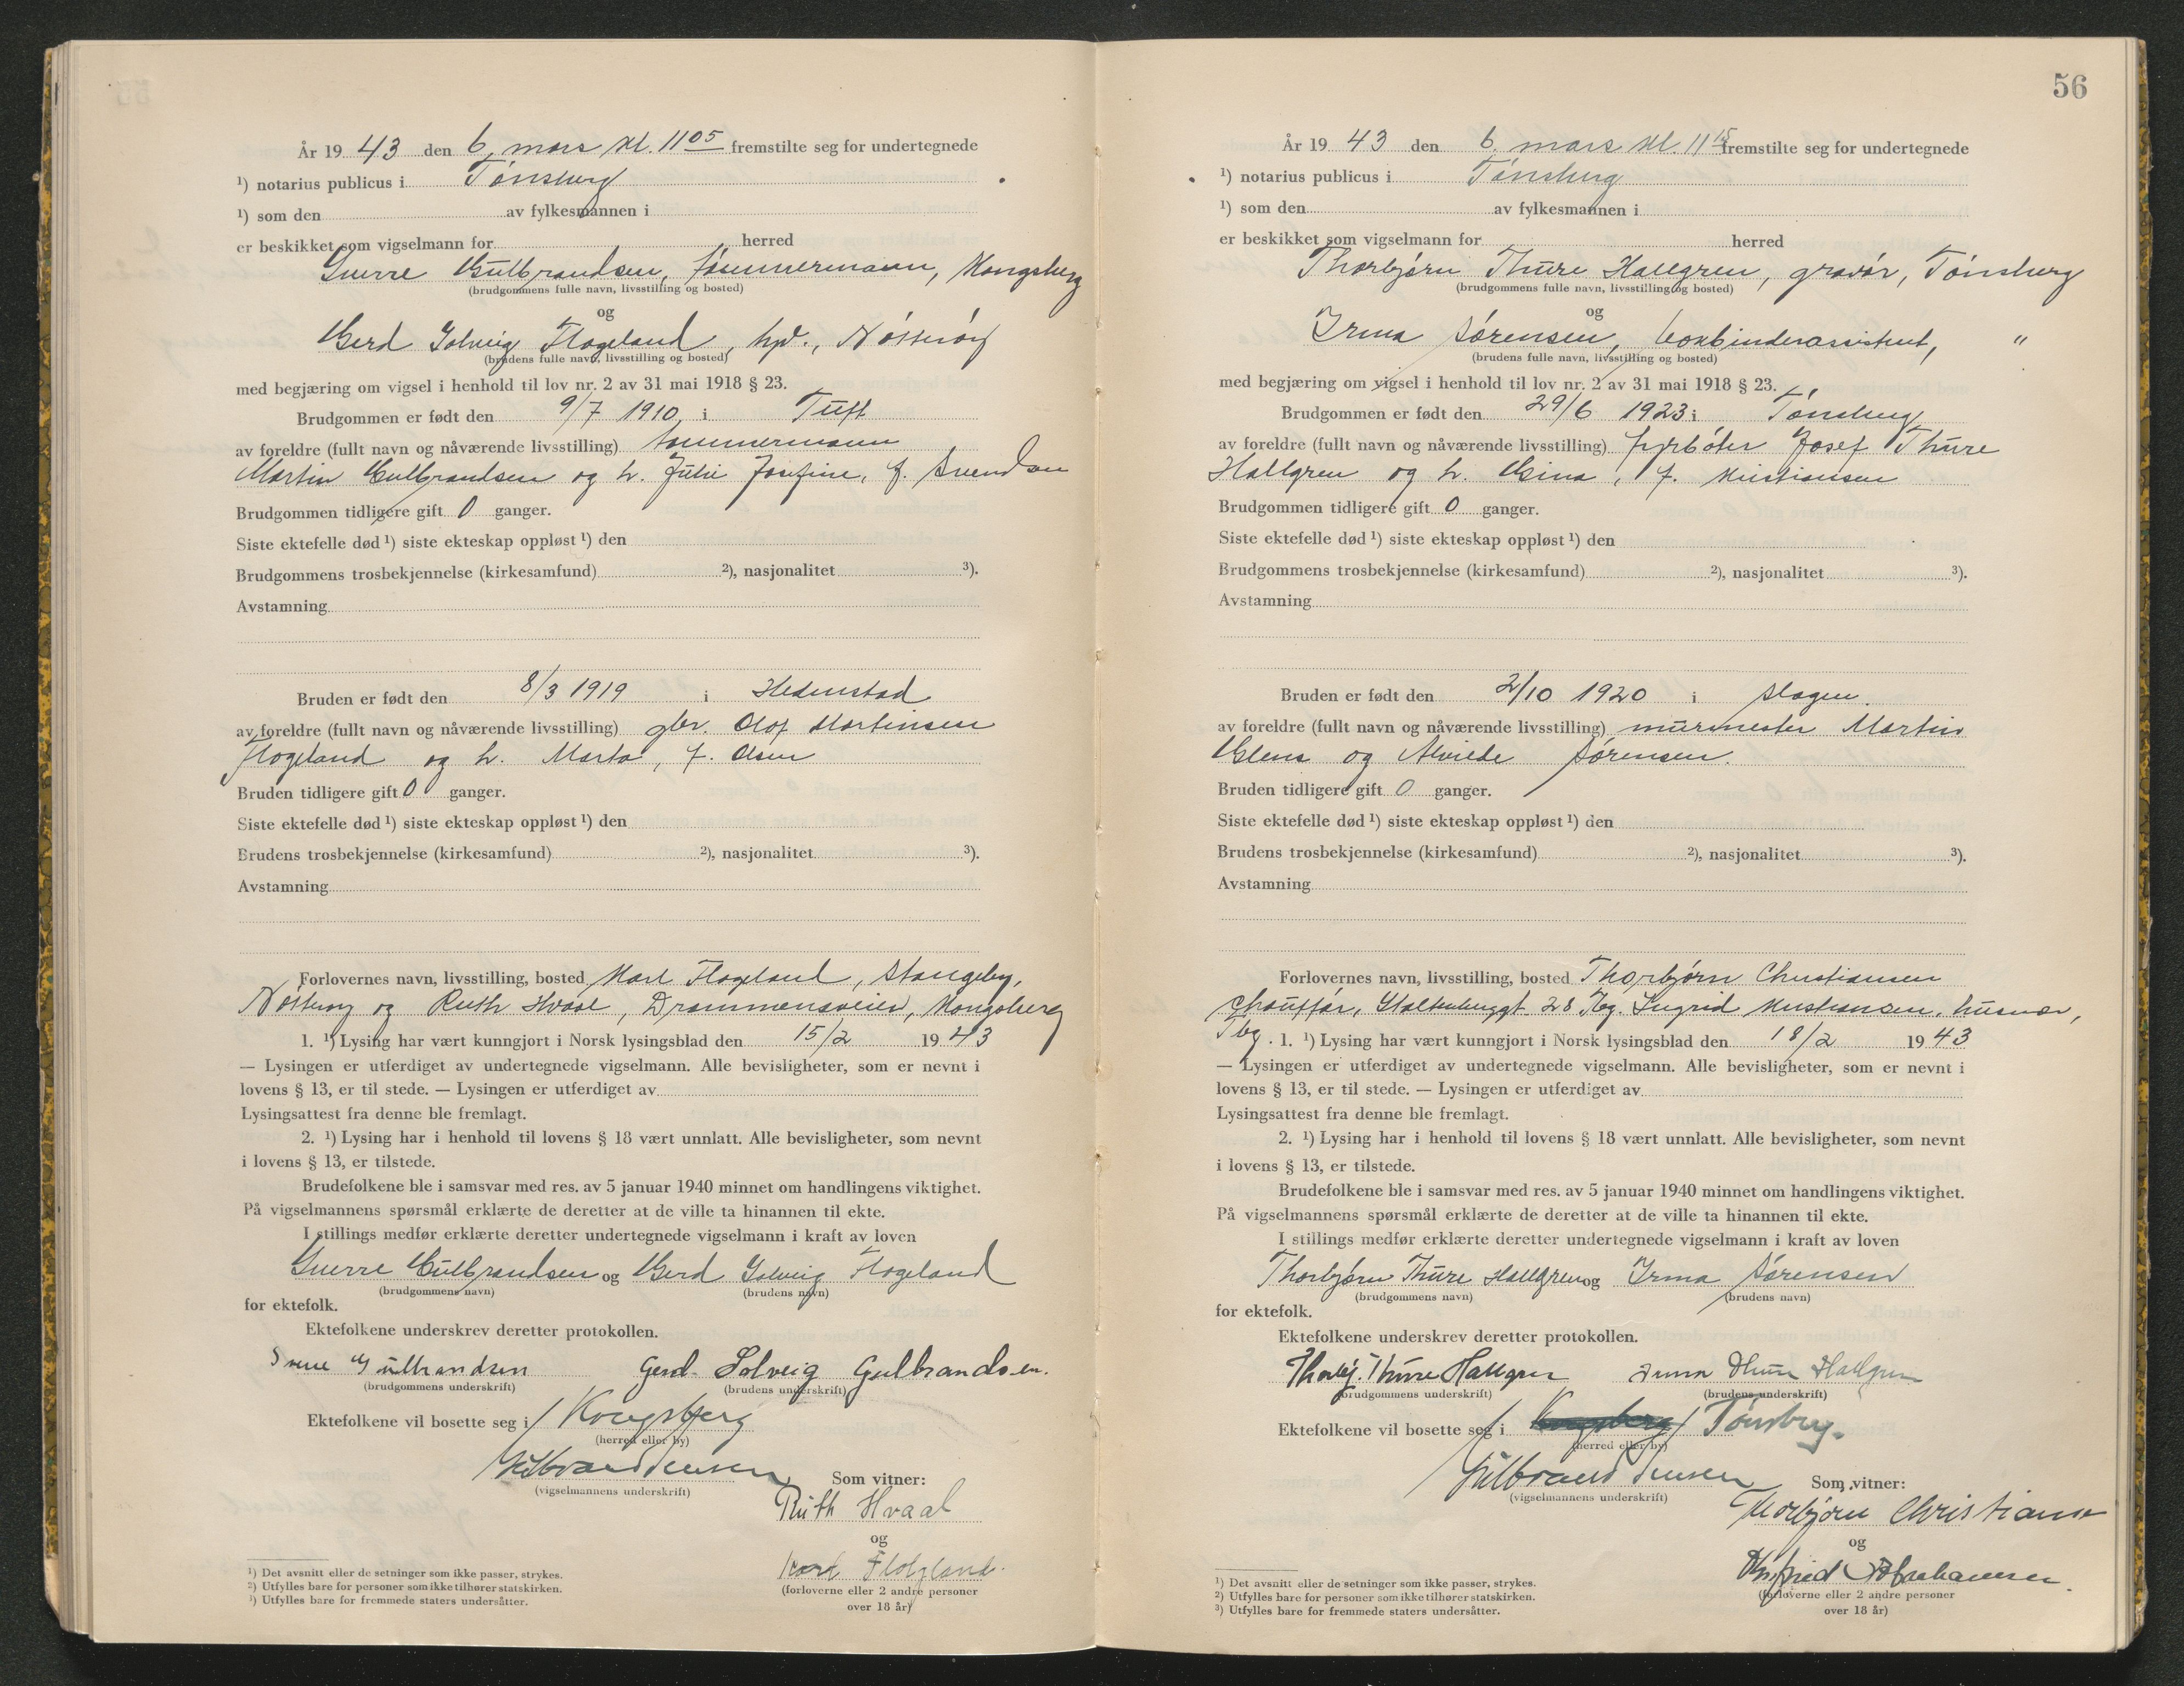 År 19 43 den 6. mars kl. 11 05 fremstilte seg for undertegnede
¹) notarius publicus i Tønsberg
¹) som den av fylkesmannen i
er beskikket som vigselmann for herred
Sverre Gulbrandsen, tømmermann, Kongsberg
(brudgommens fulle navn, livsstilling og bosted)
og
Gerd Solveig Flogeland, hpd., Nøtterøy
(brudens fulle navn, livsstilling og bosted)
med begjæring om vigsel i henhold til lov nr. 2 av 31 mai 1918 § 23.
Brudgommen er født den 9/7 1910 i Tuft
av foreldre (fullt navn og nåværende livsstilling) tømmermann
Martin Gulbrandsen og h. Julie Josefine, f. Svendsen
Brudgommen tidligere gift 0 ganger.
Siste ektefelle død ¹) siste ekteskap oppløst ¹) den
Brudgommens trosbekjennelse (kirkesamfund) ²), nasjonalitet ³).
Avstamning
Bruden er født den 8/3 1919 i Hedenstad
av foreldre (fullt navn og nåværende livsstilling) gbr. Olof Martinsen
Flogeland og h. Marta, f. Olsen
Bruden tidligere gift 0 ganger.
Siste ektefelle død ¹) siste ekteskap oppløst ¹) den
Brudens trosbekjennelse (kirkesamfund) ²), nasjonalitet ³).
Avstamning
Forlovernes navn, livsstilling, bosted Karl Flogeland, Stangeby,
Nøtterøy og Ruth Hvaal, Drammensveien, Kongsberg
1. ¹) Lysing har vært kunngjort i Norsk lysingsblad den 15/2 19 43
— Lysingen er utferdiget av undertegnede vigselmann. Alle bevisligheter, som er nevnt i
lovens § 13, er til stede. — Lysingen er utferdiget av
Lysingsattest fra denne ble fremlagt.
2. ¹) Lysing har i henhold til lovens § 18 vært unnlatt. Alle bevisligheter, som nevnt
i lovens § 13, er tilstede.
Brudefolkene ble i samsvar med res. av 5 januar 1940 minnet om handlingens viktighet.
På vigselmannens spørsmål erklærte de deretter at de ville ta hinannen til ekte.
I stillings medfør erklærte deretter undertegnede vigselmann i kraft av loven
Sverre Gulbrandsen og Gerd Solveig Flogeland
(brudgommens navn) (brudens navn)
for ektefolk.
Ektefolkene underskrev deretter protokollen.
Sverre Gulbrandsen Gerd Solveig Gulbrandsen.
(brudgommens underskrift) (brudens underskrift)
Ektefolkene vil bosette seg i Kongsberg
(herred eller by)
Som vitner:
(vigselmannens underskrift)
Ruth Hvaal
og
Karl Flogland.
(forloverne eller 2 andre personer
over 18 år)
¹) Det avsnitt eller de setninger som ikke passer, strykes.
²) Utfylles bare for personer som ikke tilhører statskirken.
³) Utfylles bare for fremmede staters undersåtter.
56
År 19 43 den 6. mars kl. 11 15 fremstilte seg for undertegnede
¹) notarius publicus i Tønsberg
¹) som den av fylkesmannen i
er beskikket som vigselmann for herred
Thorbjørn Thure Hallgren, gravør, Tønsberg
(brudgommens fulle navn, livsstilling og bosted)
og
Irma Sørensen, bokbinderassistent, "
(brudens fulle navn, livsstilling og bosted)
med begjæring om vigsel i henhold til lov nr. 2 av 31 mai 1918 § 23.
Brudgommen er født den 29/6 1923 i Tønsberg
av foreldre (fullt navn og nåværende livsstilling) fyrbøter Josef Thure
Hallgren og h. Gina, f. Kristiansen
Brudgommen tidligere gift 0 ganger.
Siste ektefelle død ¹) siste ekteskap oppløst ¹) den
Brudgommens trosbekjennelse (kirkesamfund) ²), nasjonalitet ³).
Avstamning
Bruden er født den 2/10 1920 i Slagen.
av foreldre (fullt navn og nåværende livsstilling) murmester Martin
Glens og Alvilde Sørensen.
Bruden tidligere gift 0 ganger.
Siste ektefelle død ¹) siste ekteskap oppløst ¹) den
Brudens trosbekjennelse (kirkesamfund) ²), nasjonalitet ³).
Avstamning
Forlovernes navn, livsstilling, bosted Thorbjørn Christiansen
chauffør, 28 Tbg. Ingrid Kristiansen, husmor,
Tbg. 1. ¹) Lysing har vært kunngjort i Norsk lysingsblad den 18/2 19 43
— Lysingen er utferdiget av undertegnede vigselmann. Alle bevisligheter, som er nevnt i
lovens § 13, er til stede. — Lysingen er utferdiget av
Lysingsattest fra denne ble fremlagt.
2. ¹) Lysing har i henhold til lovens § 18 vært unnlatt. Alle bevisligheter, som nevnt
i lovens § 13, er tilstede.
Brudefolkene ble i samsvar med res. av 5 januar 1940 minnet om handlingens viktighet.
På vigselmannens spørsmål erklærte de deretter at de ville ta hinannen til ekte.
I stillings medfør erklærte deretter undertegnede vigselmann i kraft av loven
Thorbjørn Thure Hallgren og Irma Sørensen
(brudgommens navn) (brudens navn)
for ektefolk.
Ektefolkene underskrev deretter protokollen.
Thorbj. Thure Hallgren Irma Thure Hallgren
(brudgommens underskrift) (brudens underskrift)
Ektefolkene vil bosette seg i Kongsberg Tønsberg.
(herred eller by)
Som vitner:
(vigselmannens underskrift)
Thorbjørn Christiansen
og
(forloverne eller 2 andre personer
over 18 år)
¹) Det avsnitt eller de setninger som ikke passer, strykes.
²) Utfylles bare for personer som ikke tilhører statskirken.
³) Utfylles bare for fremmede staters undersåtter.